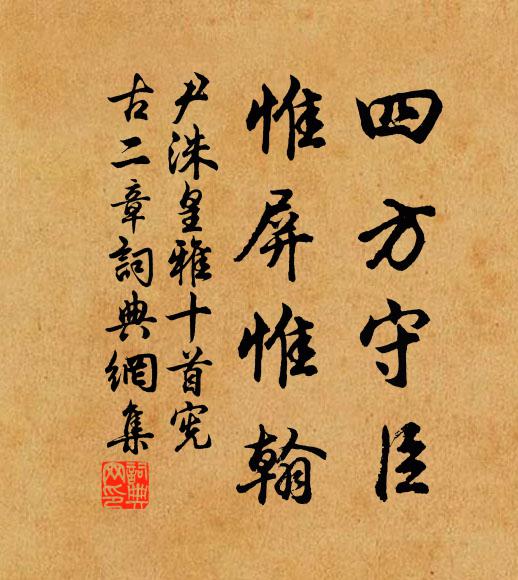 四方守臣
惟屏惟翰
尹洙皇雅十首宪
古二章詞典網集
詞典網印